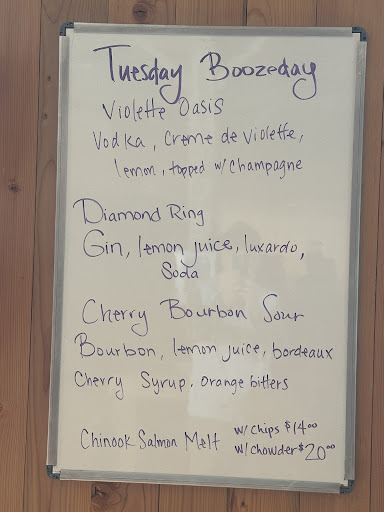 Tuesday Boozeday
Violette Oasis
Vodka, Creme de Violette,
lemon, topped w/ Champagne
Diamond Ring
Gin, lemon juice, luxardo,
Soda
Cherry Bourbon Sour
Bourbon, lemon juice, bordeaux
Cherry Syrup, orange bitters
Chinook Salmon Melt w/ Chips $14.00
w/ chowder $20.00